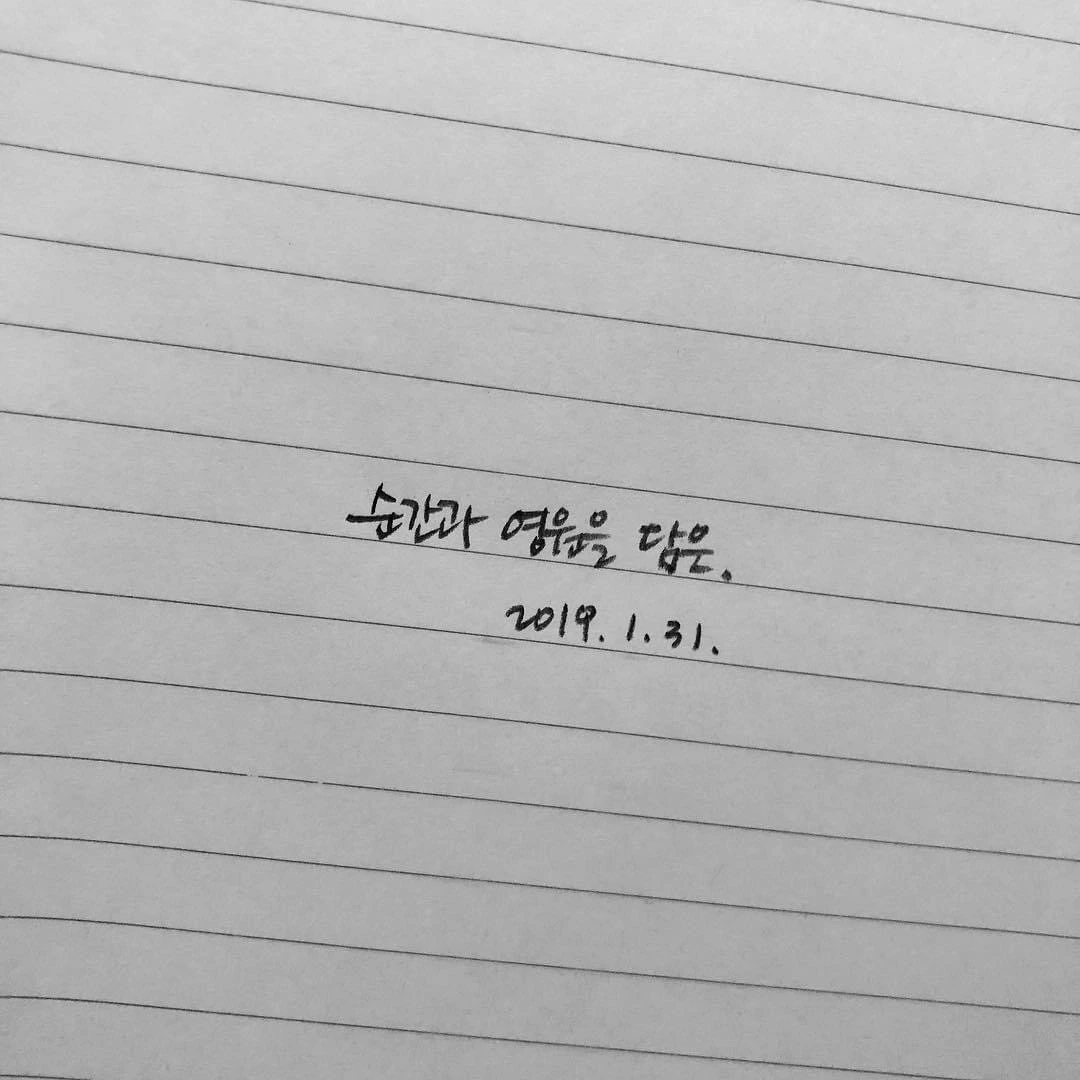 순간과 영원을 담은.
2019. 1. 31.